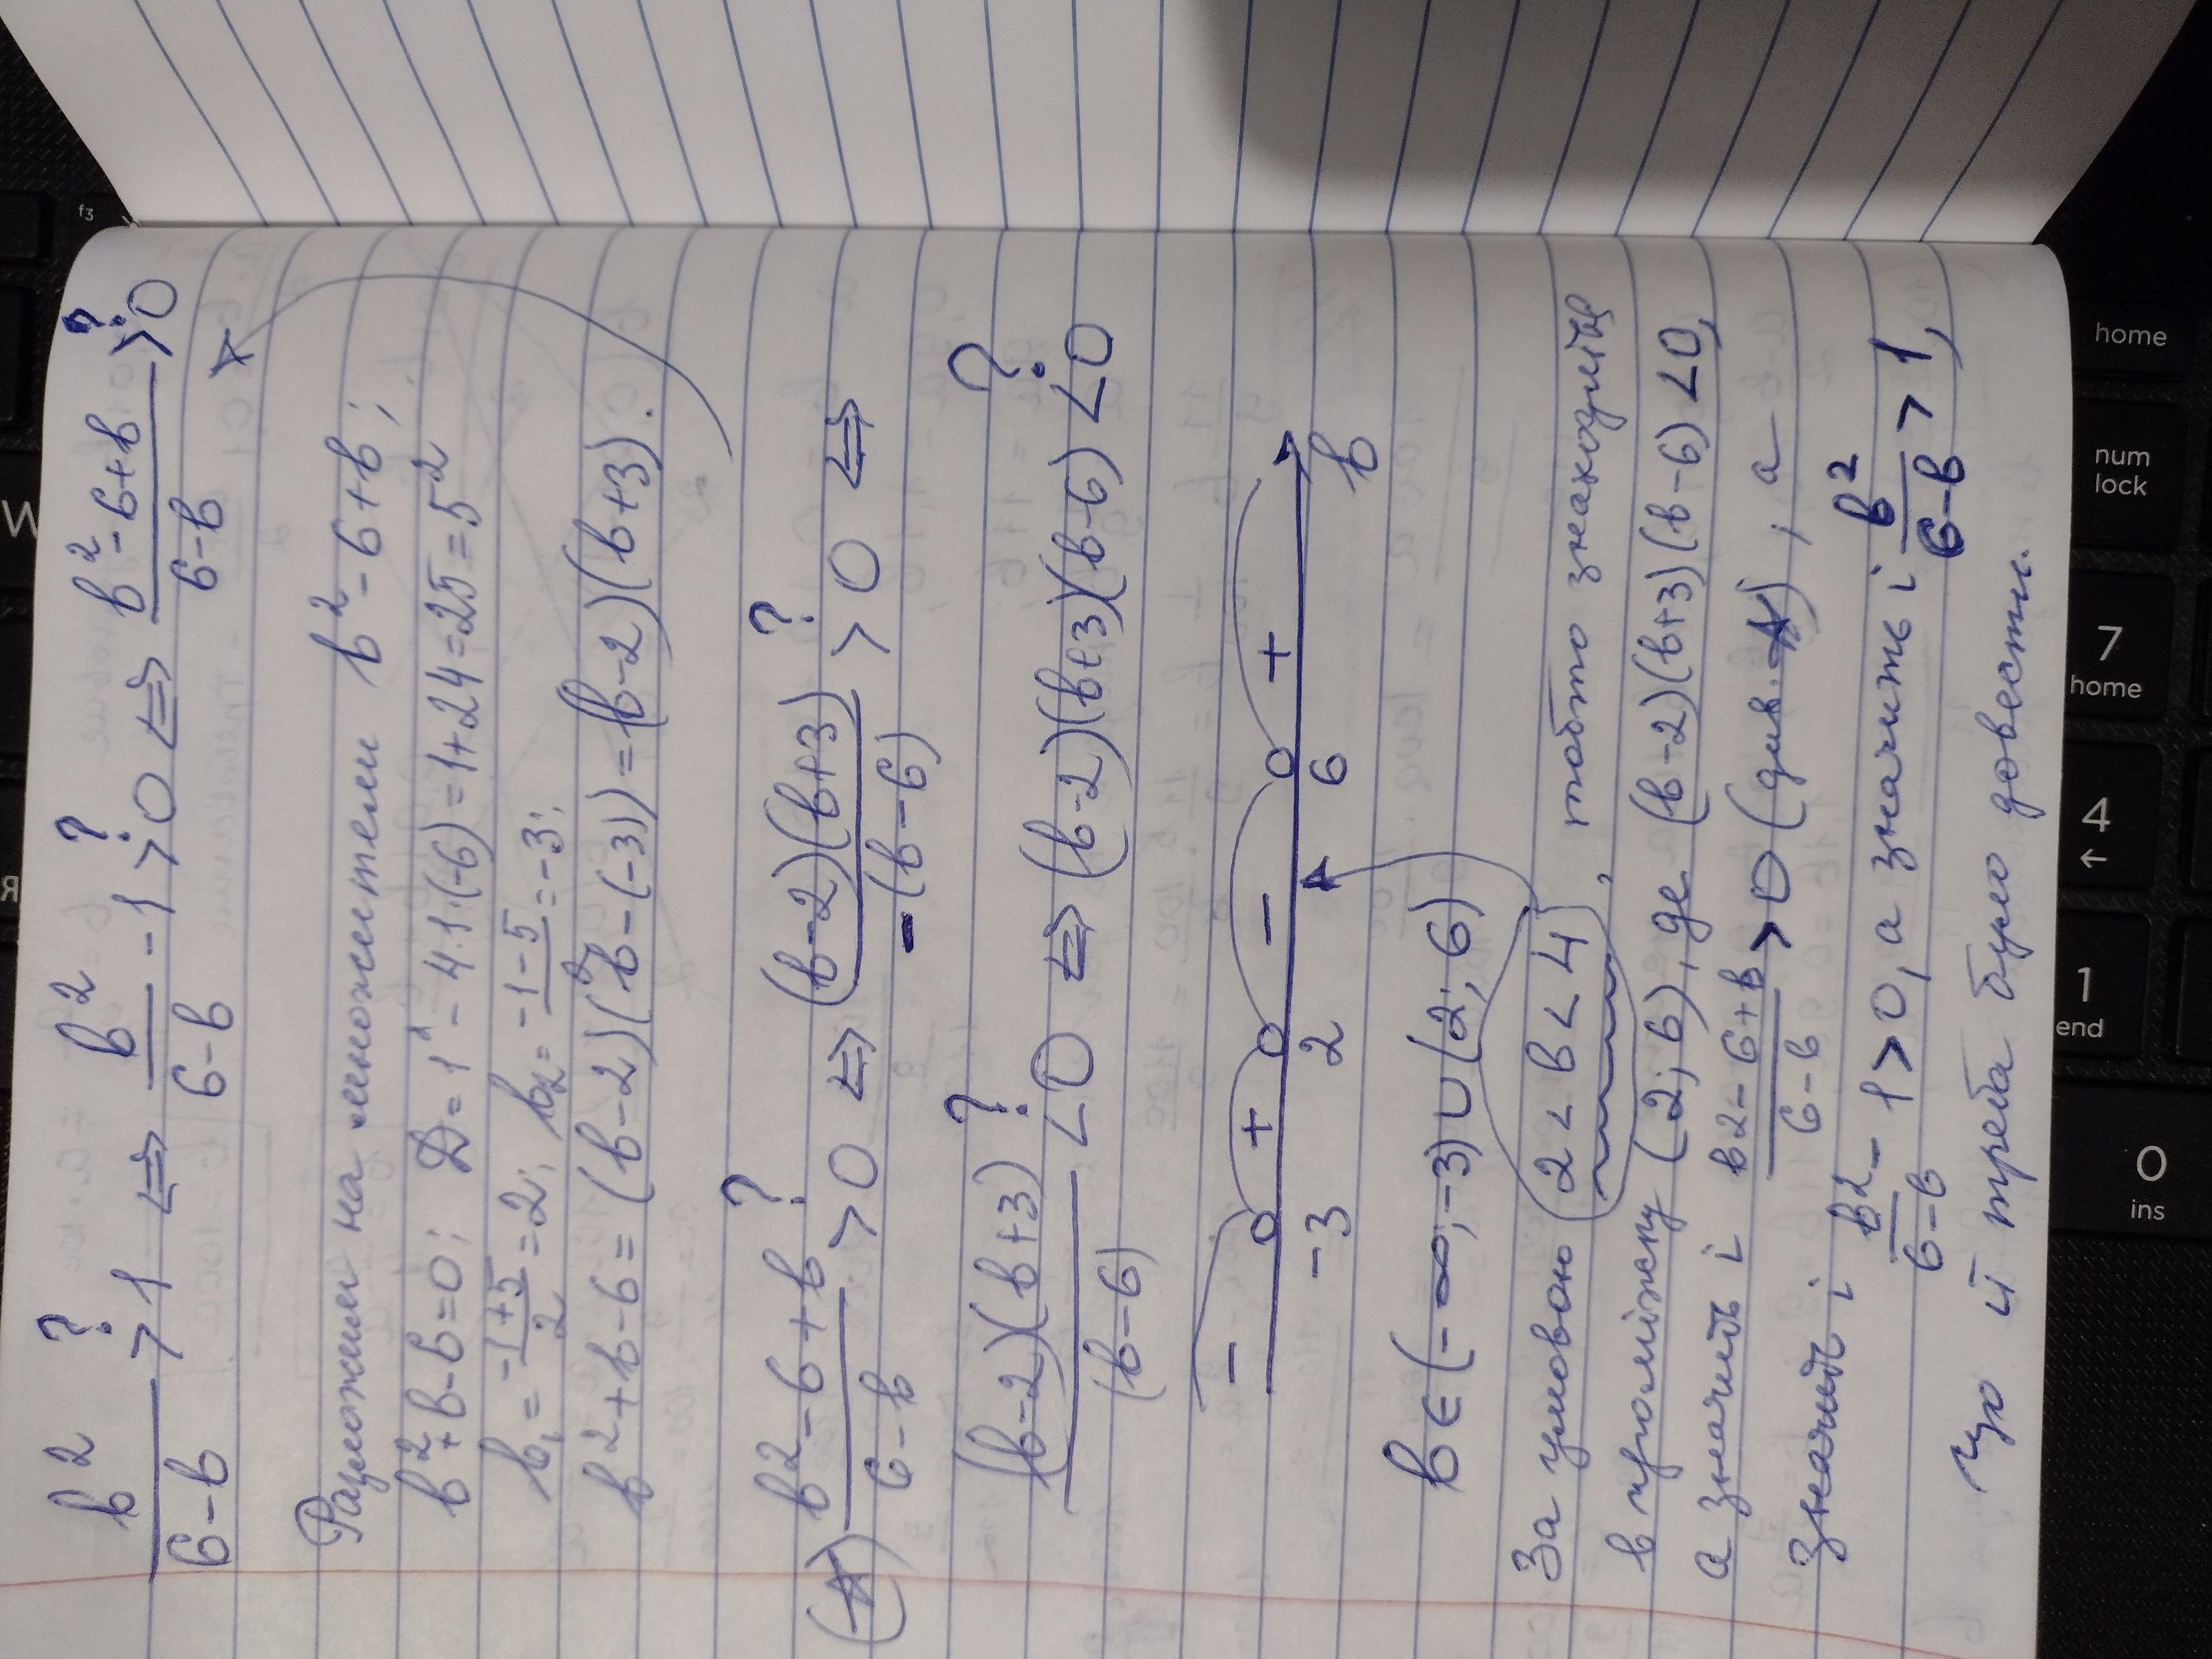 b²/(6-b) >? 1 ⇔ b²/(6-b) - 1 >? 0 ⇔ (b²-6+b)/(6-b) >? 0
Разложим на множители b²-6+b;
b²+b-6=0; D=1²-4·1·(-6)=1+24=25=5²
b₁=(-1+5)/2=2; b₂=(-1-5)/2=-3;
b²+b-6=(b-2)(b-(-3))=(b-2)(b+3).
(*) (b²-6+b)/(6-b) >? 0 ⇔ (b-2)(b+3)/-(b-6) >? 0 ⇔
(b-2)(b+3)/(b-6) <? 0 ⇔ (b-2)(b+3)(b-6) <? 0
- + - +
-3 2 6 b
b ∈ (-∞; -3) ∪ (2; 6)
За умовою 2 < b < 4, тобто знаходиться
в проміжку (2; 6), де (b-2)(b+3)(b-6) < 0,
а значить і (b2-6+b)/(6-b) > 0 (див. *), а
значить і b2/(6-b) - 1 > 0, а значить і b²/(6-b) > 1,
що й треба було довести.
f3
W
Я
home
num
lock
7
home
4
←
1
end
0
ins